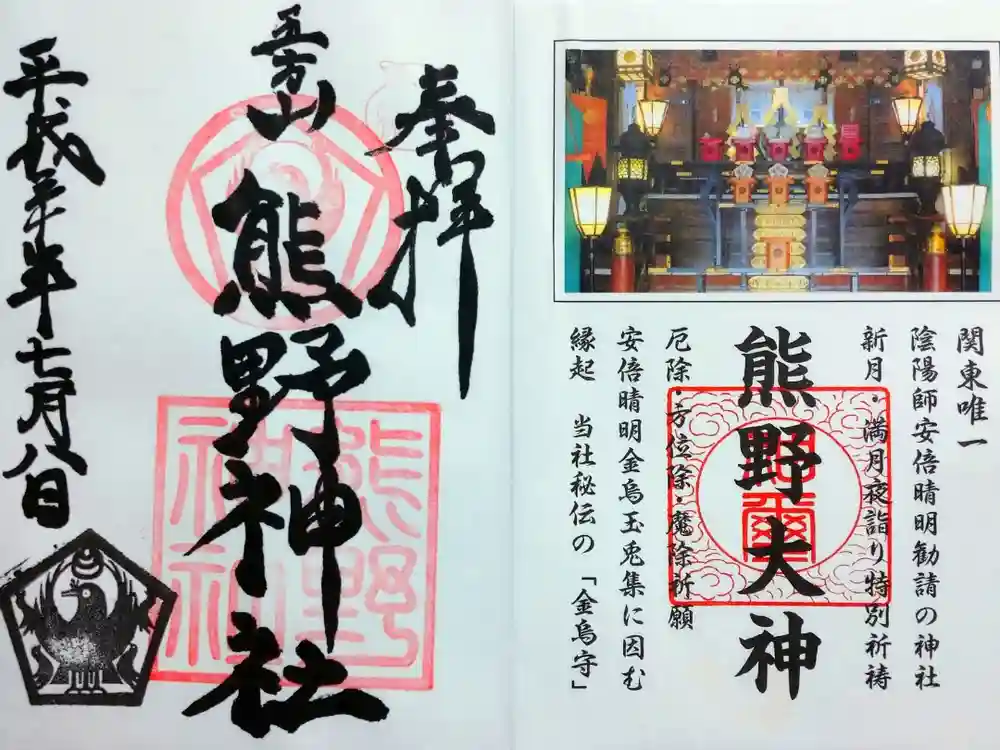 関東唯一
陰陽師安倍晴明勧請の神社
新月・満月夜詣り特別祈祷
熊野大神
厄除・方位除・魔除祈願
安倍晴明金烏玉兎集に因む
縁起　当社秘伝の「金烏守」
奉拝
五方山
熊野神社
熊野
神社
平成三十年七月八日